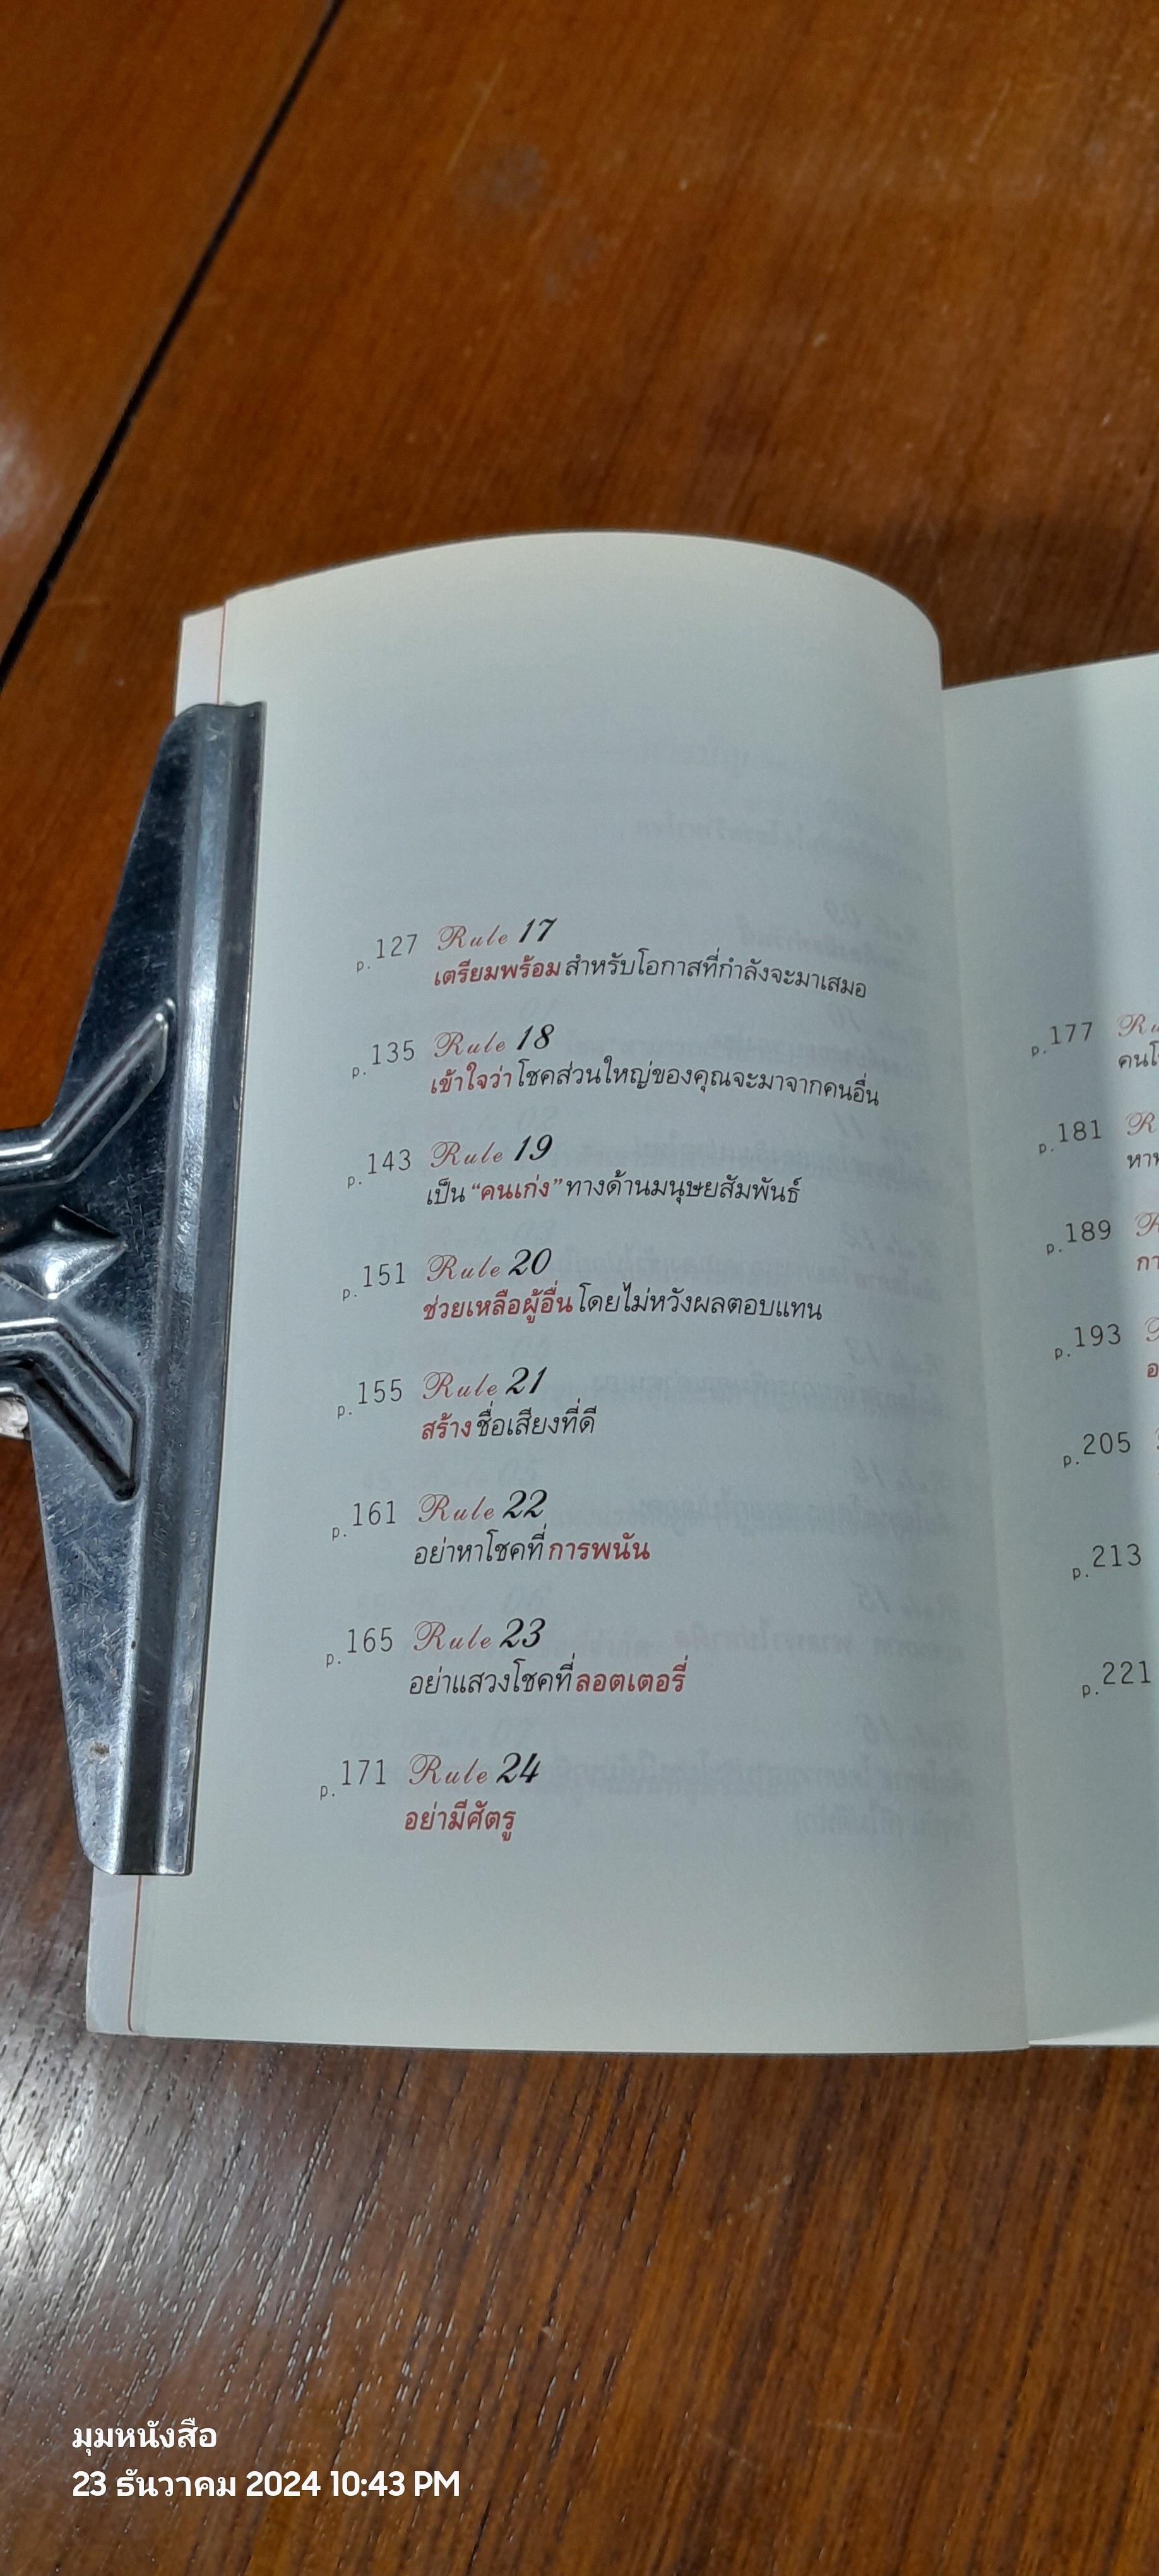 p.127 Rule 17
เตรียมพร้อมสำหรับโอกาสที่กำลังจะมาเสมอ
p.135 Rule 18
เข้าใจว่าโชคส่วนใหญ่ของคุณจะมาจากคนอื่น
p.143 Rule 19
เป็น “คนเก่ง” ทางด้านมนุษยสัมพันธ์
p.151 Rule 20
ช่วยเหลือผู้อื่นโดยไม่หวังผลตอบแทน
p.155 Rule 21
สร้างชื่อเสียงที่ดี
p.161 Rule 22
อย่าหาโชคที่การพนัน
p.165 Rule 23
อย่าแสวงโชคที่ลอตเตอรี่
p.171 Rule 24
อย่ามีศัตรู
p.177
p.181
p.189
p.193
p.205
p.213
p.221
มุมหนังสือ
23 ธันวาคม 2024 10:43 PM